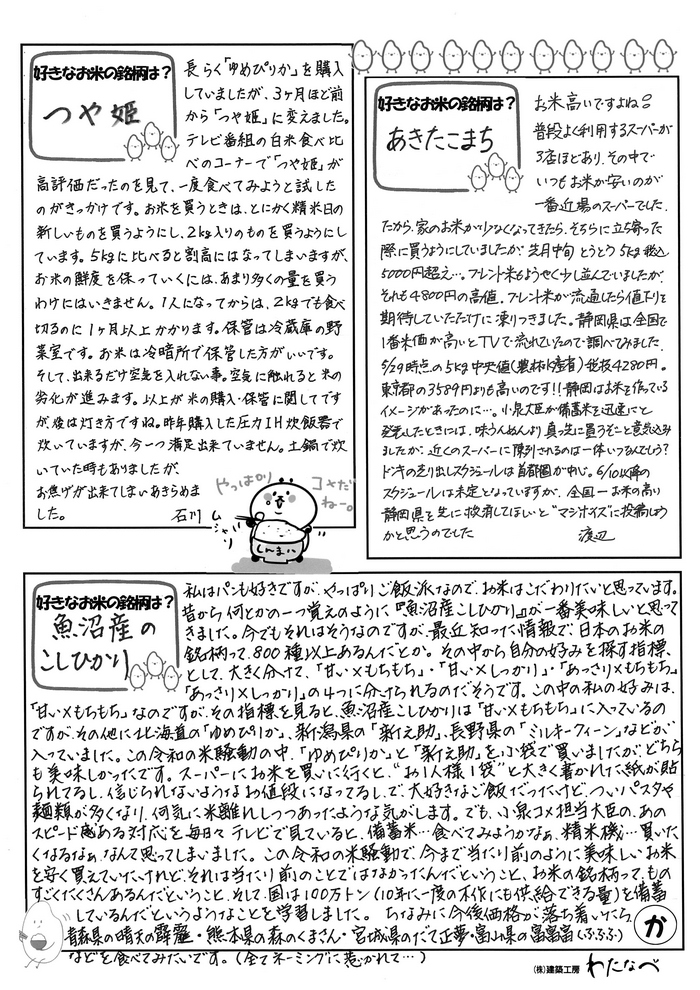 好きなお米の銘柄は?
つや姫
長らく「ゆめぴりか」を購入
していましたが、3ヶ月ほど前
から「つや姫」に変えました。
テレビ番組の白米食べ比
べのコーナーで「つや姫」が
高評価だったのを見て、一度食べてみようと試した
のがきっかけです。お米を買うときは、とにかく精米日の
新しいものを買うようにし、2kg入りのものを買うようにし
ています。5kgに比べると割高にはなってしまいますが、
お米の鮮度を保っていくには、あまり多くの量を買う
わけにはいきません。1人になってからは、2kgでも食べ
切るのに1ヶ月以上かかります。保管は冷蔵庫の野
菜室です。お米は冷暗所で保管した方がいいです。
そして、出来るだけ空気を入れない事。空気に触れると米の
劣化が進みます。以上が米の購入・保管に関してです
が、後は灯き方ですね。昨年購入した圧力IH炊飯器で
炊いていますが、今一つ満足出来ていません。土鍋で炊
いていた時もありましたが、
お焦げが出来てしまいあきらめま
した。 石川
やっぱり
コメだ
ねー。
しんまい
好きなお米の銘柄は?
あきたこまち
お米高いですよね
普段よく利用するスーパーが
3店ほどあり、その中で
いつもお米が安いのが
一番近場のスーパーでした。
だから、家のお米が少なくなってきたら、そちらに立ち寄った
際に買うようにしていましたが、先月中旬 とうとう5kg税込
5000円超え…。ブレンド米もようやく少し並んでいましたが、
それも4800円の高値。ブレンド米が流通したら値下りを
期待していただけに凍りつきました。静岡県は全国で
1番米価が高いとTVで流れていたので調べてみました。
5/29時点の5kg中央値(農林水産省)税抜4280円。
東京都の3589円よりも高いのです!!静岡はお米を作っている
イメージがあったのに…。小泉大臣が備蓄米を迅速にと
発見したときには、味うんぬんより真っ先に買うぞーと意気込み
ましたが、近くのスーパーに陳列されるのは一体いつなんでしょう?
ドンキの売り出しスケジュールは首都圏が中心。6/10以降の
スケジュールは未定となっていますが、全国一お米の高い
静岡県を先に投消してほしいと"マジオイズ"に投稿しよう
かと思うのでした 渡辺
好きなお米の銘柄は?
魚沼産の
こしひかり
私はパンも好きですが、やっぱりご飯派なので、お米はこだわりたいと思っています。
昔から何とかの一つ覚えのように『魚沼産こしひかり』が一番美味しいと思って
きました。今でもそれはそうなのですが、最近知った情報で、日本のお米の
銘柄って、800種以上あるんだとか。その中から自分の好みを探す指標
として、大きく分けて、「甘い×もちもち」・「甘い×しっかり」・「あっさり×もちもち」
「あっさり×しっかり」の4つに分けられるのだそうです。この中の私の好みは、
「甘い×もちもち」なのですが、その指標を見ると、魚沼産こしひかりは「甘い×もちもち」に入っているの
ですが、その他に北海道の「ゆめぴりか」、新潟県の「新之助」、長野県の「ミルキークィーン」などが
入っていました。この令和の米騒動の中、「ゆめぴりか」と「新之助」を小袋で買いましたが、どちら
も美味しかったです。スーパーにお米を買いに行くと、"お1人様1袋"と大きく書かれた紙が貼
られてるし、信じられないようなお値段になってるしで、大好きなご飯だったけど、ついパスタや
麺類が多くなり、何気に米離れしつつあったような気がします。でも、小泉コメ担当大臣の、あの
スピード感ある対応を毎日々テレビで見ていると、備蓄米…食べてみようかなぁ、精米機…買いた
くなるなぁ、なんて思ってしまいました。この令和の米騒動で、今まで当たり前のように美味しいお米
を安く買えていたけれど、それは当たり前のことではなかったんだということ、お米の銘柄って、もの
すごくたくさんあるんだということ、そして、国は100万トン(10年に一度の不作にも供給できる量)を備蓄
しているんだというようなことを学習しました。ちなみに今後価格が落ち着いたら、
青森県の晴天の霹靂・熊本県の森のくまさん・宮城県のだて正夢・富山県の富富富(ふふふ)
などを食べてみたいです。(全てネーミングに惹かれて…)
か
(株)建築工房 わたなべ